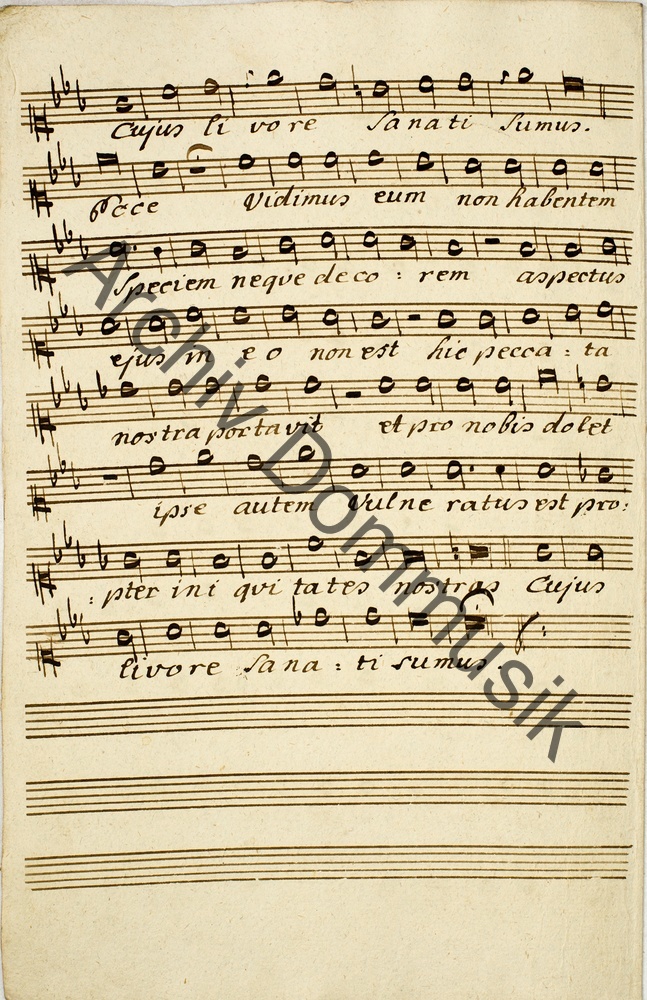 Cujus li vo re Sanati Sumus.
Ecce Vidimus eum non habentem
Speciem neque deco : rem aspectus
ejus in eo non est hic pecca : ta
nostra portavit et pro nobis dolet
ipse autem Vulne ratus est pro :
: pter ini qui tates nostras Cujus
livore Sana : ti sumus.
Archiv Dommusik